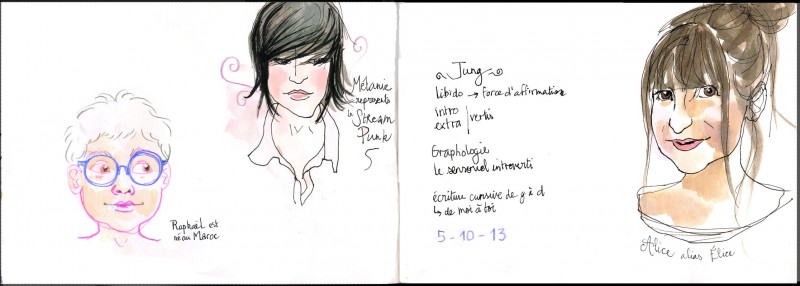 Raphaël est
né au Maroc
Mélanie
représente
le
Stream
Punk
Jung
libido → force d'affirmation
intro
extra / vertis
Graphologie
le sensoriel introverti
écriture cursive de g à d
↳ de moi à toi
5-10-13
Alice alias Élice